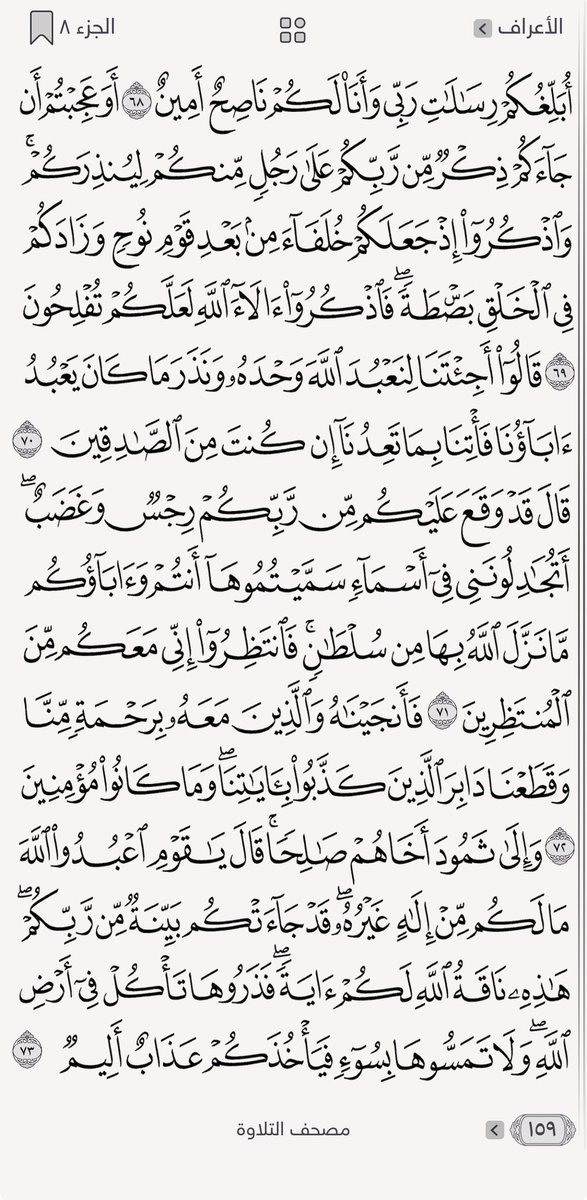 الأعراف
الجزء ٨
أُبَلِّغُكُمْ رِسَٰلَٰتِ رَبِّى وَأَنَا۠ لَكُمْ نَاصِحٌ أَمِينٌ ٦٨ أَوَعَجِبْتُمْ أَن
جَآءَكُمْ ذِكْرٌ مِّن رَّبِّكُمْ عَلَىٰ رَجُلٍ مِّنكُمْ لِيُنذِرَكُمْ ۚ
وَٱذْكُرُوٓا۟ إِذْ جَعَلَكُمْ خُلَفَآءَ مِنۢ بَعْدِ قَوْمِ نُوحٍ وَزَادَكُمْ
فِى ٱلْخَلْقِ بَصْۜطَةً ۖ فَٱذْكُرُوٓا۟ ءَالَآءَ ٱللَّهِ لَعَلَّكُمْ تُفْلِحُونَ
٦٩ قَالُوٓا۟ أَجِئْتَنَا لِنَعْبُدَ ٱللَّهَ وَحْدَهُۥ وَنَذَرَ مَا كَانَ يَعْبُدُ
ءَابَآؤُنَا فَأْتِنَا بِمَا تَعِدُنَآ إِن كُنتَ مِنَ ٱلصَّٰدِقِينَ ٧٠
قَالَ قَدْ وَقَعَ عَلَيْكُم مِّن رَّبِّكُمْ رِجْسٌ وَغَضَبٌ ۖ
أَتُجَٰدِلُونَنِى فِىٓ أَسْمَآءٍ سَمَّيْتُمُوهَآ أَنتُمْ وَءَابَآؤُكُم
مَّا نَزَّلَ ٱللَّهُ بِهَا مِن سُلْطَٰنٍ ۚ فَٱنتَظِرُوٓا۟ إِنِّى مَعَكُم مِّنَ
ٱلْمُنتَظِرِينَ ٧١ فَأَنجَيْنَٰهُ وَٱلَّذِينَ مَعَهُۥ بِرَحْمَةٍ مِّنَّا
وَقَطَعْنَا دَابِرَ ٱلَّذِينَ كَذَّبُوا۟ بِـَٔايَٰتِنَا ۖ وَمَا كَانُوا۟ مُؤْمِنِينَ
٧٢ وَإِلَىٰ ثَمُودَ أَخَاهُمْ صَٰلِحًا ۗ قَالَ يَٰقَوْمِ ٱعْبُدُوا۟ ٱللَّهَ
مَا لَكُم مِّنْ إِلَٰهٍ غَيْرُهُۥ ۖ قَدْ جَآءَتْكُم بَيِّنَةٌ مِّن رَّبِّكُمْ ۖ
هَٰذِهِۦ نَاقَةُ ٱللَّهِ لَكُمْ ءَايَةً ۖ فَذَرُوهَا تَأْكُلْ فِىٓ أَرْضِ
ٱللَّهِ ۖ وَلَا تَمَسُّوهَا بِسُوٓءٍ فَيَأْخُذَكُمْ عَذَابٌ أَلِيمٌ ٧٣
١٥٩
مصحف التلاوة